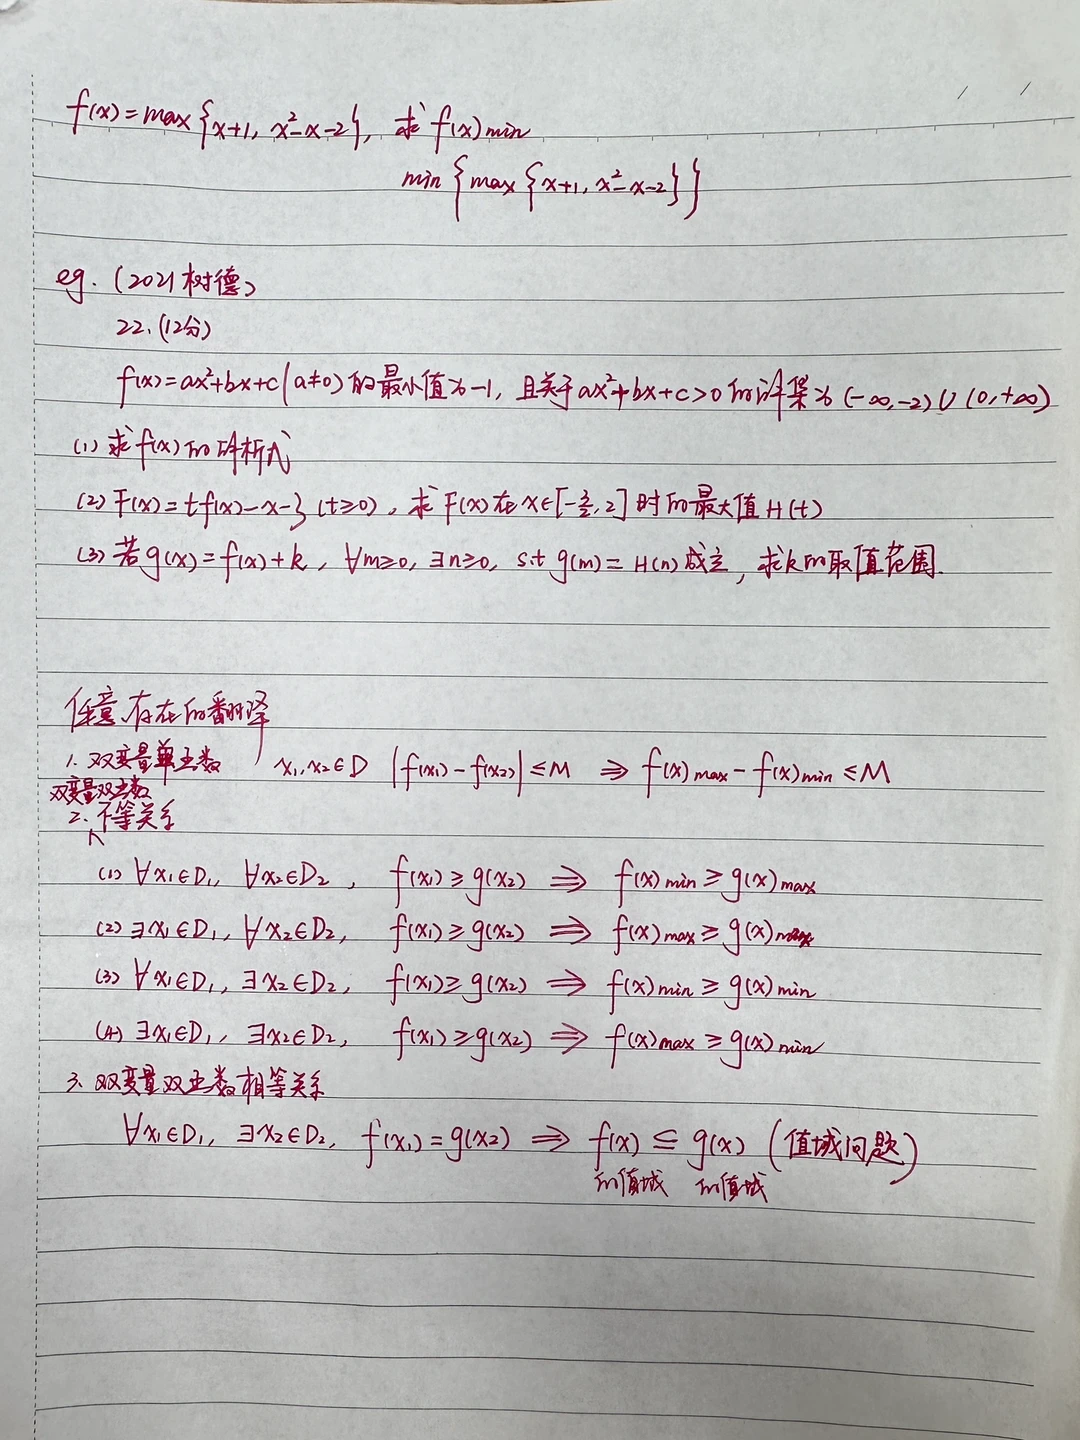 f(x)=max{x+1, x²-x-2}, 求f(x)min
min{max{x+1, x²-x-2}}
eg. (2021树德)
22. (12分)
f(x)=ax²+bx+c(a≠0)的最小值为-1, 且关于ax²+bx+c>0的解集为(-∞,-2)∪(0,+∞)
(1) 求f(x)的解析式
(2) F(x)=tf(x)-x-3 (t≥0), 求F(x)在x∈[-3/2, 2]时的最大值H(t)
(3) 若g(x)=f(x)+k, ∀m≥0, ∃n≥0, s.t g(m)=H(n)成立, 求k的取值范围.
任意、存在的翻译
1. 双变量单函数 x₁, x₂∈D |f(x₁)-f(x₂)|≤M ⇒ f(x)max-f(x)min≤M
双变量双函数
2. 不等关系
(1) ∀x₁∈D₁, ∀x₂∈D₂, f(x₁)≥g(x₂) ⇒ f(x)min≥g(x)max
(2) ∃x₁∈D₁, ∀x₂∈D₂, f(x₁)≥g(x₂) ⇒ f(x)max≥g(x)max
(3) ∀x₁∈D₁, ∃x₂∈D₂, f(x₁)≥g(x₂) ⇒ f(x)min≥g(x)min
(4) ∃x₁∈D₁, ∃x₂∈D₂, f(x₁)≥g(x₂) ⇒ f(x)max≥g(x)min
3. 双变量双函数相等关系
∀x₁∈D₁, ∃x₂∈D₂, f(x₁)=g(x₂) ⇒ f(x)⊆g(x) (值域问题)
的值域 的值域